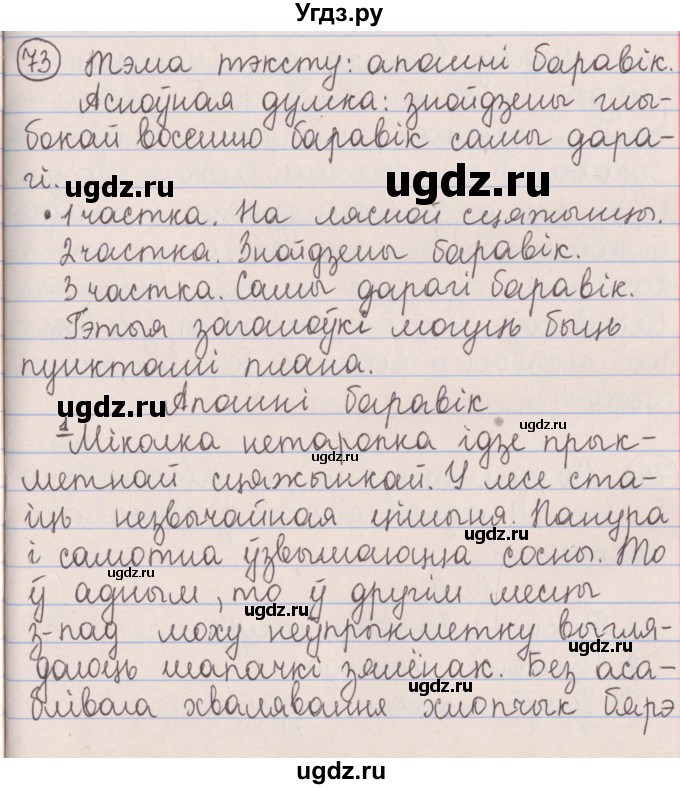 Угдз.ру
73 Тэма тэксту: апошні баравік.
Асноўная думка: знойдзены глы-
бокай восенню баравік самы дара-
гі.
ugdz.ru
ugdz.ru
• 1 частка. На лясной сцяжынцы.
2 частка. Знойдзены баравік.
3 частка. Самы дарагі баравік.
Гэтыя загалоўкі могуць быць
пунктамі плана.
ugdz.ru
Апошні баравік
ugdz.ru
1 Міколка нетаропка ідзе прык-
метнай сцяжынкай. У лесе ста-
іць незвычайная цішыня. Панура
і самотна ўзвышаюцца сосны. То
ugdz.ru
ў адным, то ў другім месцы
ugdz.ru
з-пад моху неўпрыкметку выгля-
даюць шапачкі зялёнак. Без аса-
ugdz.ru
ugdz.ru
блівага хвалявання хлопчык бярэ
ugdz.ru